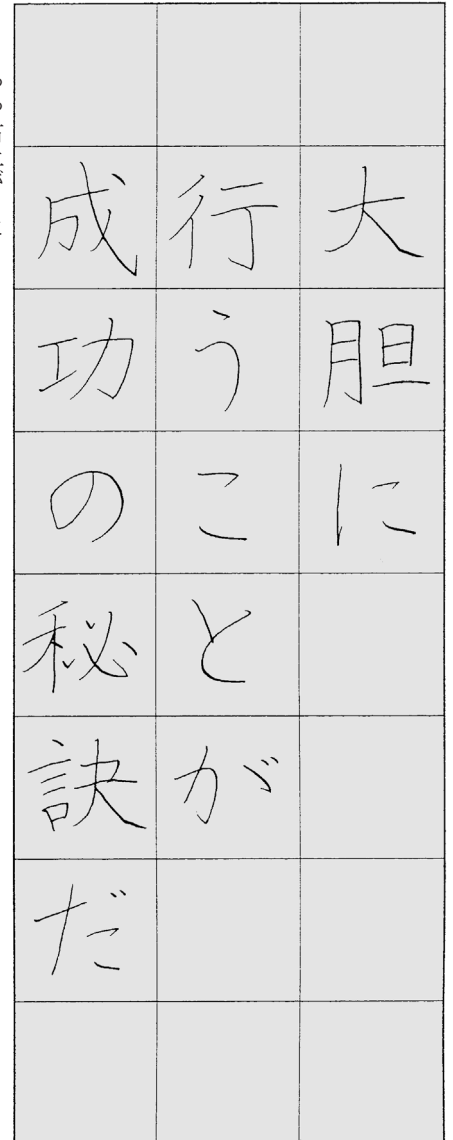 大胆に
行うことが
成功の秘訣だ